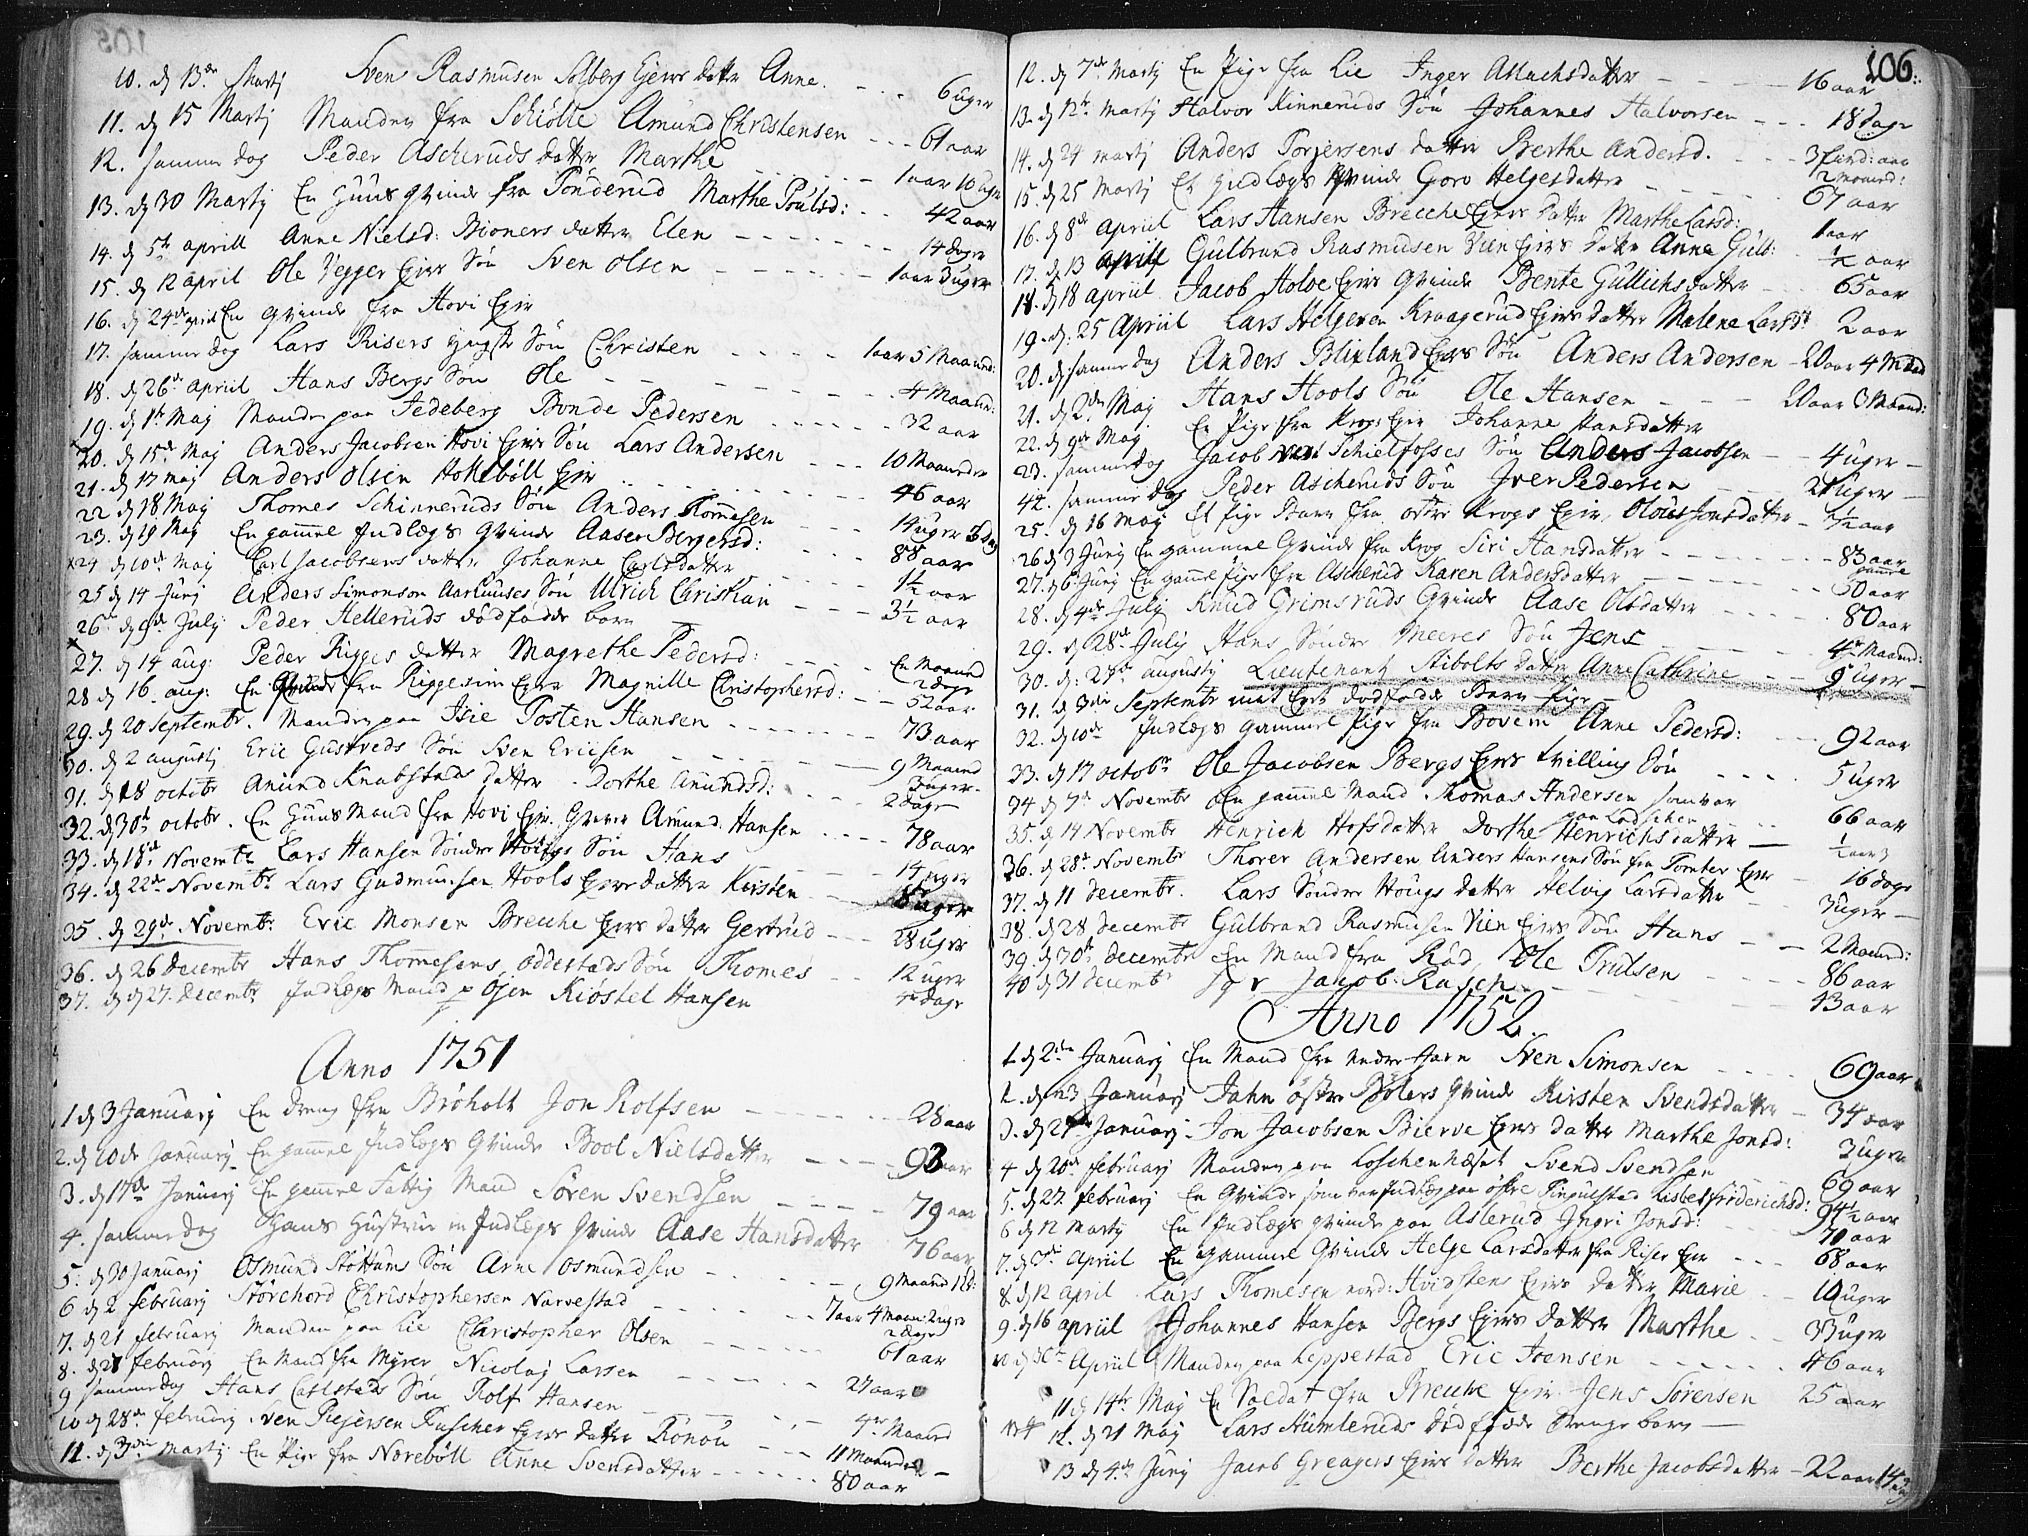 10. d 13de Martj Sven Rasmusen Solberg Ejers datter Anne. - - - 6 uger
11. d 15 Martj Manden fra Schiölle Amund Christensen - - - 61 aar
12. samme dag Peder Ascheruds datter Marthe - - - 1 aar 10 uger
13. d 30 Martj En Huus qvinde fra Tonderud Marthe Poulsd: - - 42 aar
14. d 5te aprill Anne Nielsd: Bioners datter Elen - - - 14 dager
15. d 12 april Ole Vegger Ejer Søn Sven Olsen - - - 1 aar 3 uger
16. d 24de april En qvinde fra Hovi Ejer
17. samme dag Lars Risers yngste Søn Christen - - - 1 aar 5 Maaned:
18. d 26de april Hans Bergs Søn Ole - - - 4 Maaned:
19. d 1te Maj Manden paa Jedeberg Bonde Pedersen - - - 32 aar
20. d 15de Maj Anders Jacobsen Hovi Ejers Søn Lars Andersen - - - 10 Maaneder
21. d 17 maj Anders Olsen Hokeböll Ejer - - - 46 aar
22 d 18 Maj Thomes Schinneruds Søn Anders Thomesen - - - 14 uger 3 dag
23. d 19 Maj En gamel Indlægs qvinde Aase Bergersd: - - - 88 aar
x24 d 10de Maj Carl Jacobsens datter Johanne Carlsdatter - - - 1½ aar
25 d 14 Junj Anders Simonsen Aarhuuses Søn Ulrich Christian - - - 3½ aar
26 d 9de July Peder Helleruds dødfødde barn
27. d 14 aug: Peder Rigges datter Magrethe Pedersd: - - - En Maaned 2 dage
28 d 16. aug: En Qvinde fra Riggesim Ejer Magnille Christophersd: - - 52 aar
29. d 20 septembr. Manden paa Isie Posten Hansen - - - 73 aar
30. d 2 augustj Eric Gustveds Søn Sven Ericsen - - - 9 Maaned 3 uger
31. d 18 octobr Amund Knabstads datter Dorthe Amundsd: 2 dage
32. d 30te octobr. En Huus Mand fra Hovi Ejer Amund Hansen - - - 78 aar
33. d 18de Novembr Lars Hansen Søndre Houfgs Søn Hans 14 uger
34. d 22de Novembr Lars Gudmunsen Hools Ejers datter Kirsten - - - 8 uger
35. d 29de Novembr: Eric Monsen Breche Ejers datter Gertrud - - - 28 uger
36. d 26 Decembr Hans Thomesens Oddestads Søn Thomes - - 12 uger
37. d 27. Decembr Indlægs Mand p Osen Kiøstel Hansen 4 dage
Anno 1751
1 d 3 Januarj En dreng fra Brøholt Jon Rolfsen - - - 28 aar
2. d 10de Januarj En gamel Indlægs Qvinde Bool Nielsdatter - - - 93 aar
3. d 17de Januarj En gamel Fattig Mand Sören Svendsen - - - 79 aar
4. samme dag Hans Hustrue en Indlægs Qvinde Aase Hansdatter 76 aar
5. d 30 Januarj Osmund Stottums Søn Arne Osmundsen - - - 9 Maaned
6 d 2 februarj Störchord Christophersen Narvestad - - - 7 aar 4 Maan: 2 uger 2 dage
7. d 21 februarj Manden paa Lie Christopher Olsen - - - 61 aar
8. d 21 februarj En Mand fra Myrer Nicolaj Larsen - - - 27 aar
9 samme dag Hans Carlstads Søn Rolf Hansen - - - 4re Maaned
10 d 28de februarj Sven Ejers datter Ronou - - 11 Maaneder
11. d 3die Martj En Pige fra Norebøll Anne Svensdatter - - - 80 aar
106.
12. d 7de Martj En Pige fra Lie Inger Aslachsdatter - - - 16 aar
13. d 12te Martj Halvor Kinneruds Søn Johannes Halvorsen - - - 18 dage
14. d 24 martj Anders Torjersens datter Berthe Andersd. - - - 3 fierd: aar 2 maaned:
15. d 25 Martj Et Indlægs Qvinde Goro Helgesdatter - - - 67 aar
16. d 8de Apriil Lars Hansen Breche Ejers datter Marthe Larsd: 1 aar
17. d 13 april Gulbrand Rasmusen Vien Ejers datter Anne Gulb: - ½ aar
18. d 18 april Jacob Holve Ejers Qvinde Bente Gullichsdatter - - 65 aar
19. d: 25 Apriil Lars Helgesen Kraagerud Ejers datter Malene Larsdr 2 aar
20. d samme dag Anders Blixland Ejers Søn Anders Andersen - 2 aar 4 Maaned
21. d 2den Maj Hans Hools Søn Ole Hansen - - - 2 aar 3 Maaned:
22. d 9de Maj. En Pige fra Krogs Ejer Johanne Hansdatter
23. samme dag Jacob Schielfosses Søn Anders Jacobsen - - 4 uger -
44. samme dag Peder Ascheruds Søn Iver Pedersen - - 21 uger -
25. d 16 Maj Et Pige Barn fra østre Krogs Ejer, Olous Jonsdatter - ½ aar
26 d 3 Junj En gammel Qvinde fra Krog Siri Hansdatter - - - 83 aar gamle
27. d 6 Junj En gamel Pige fra Ascherud Karen Andersdatter - - - 50 aar
28. d 4de July Knud Grimsruds Qvinde Aase Olsdatter - - - 80 aar
29. d 28de July Hans Søndre Meeres Søn Jens - - - 4re Maaned:
30. d: 27de augustj Lieutenant Stibolts datter Anne Cathrine - - 9 uger -
31. d 3die Septembr dødfødde Barn Pige -
32. d 10de Indlægs gammel Pige fra Bovem Anne Pedersd: - - 92 aar
33. d 17 octobr Ole Jacobsen Bergs Ejers tvilling Søn - - - 5 uger
34 d 7de Novembr En gammel Mand Thomas Andersen som var 66 aar
35. d 14 Novembr Henrich Hofsdatter Dorthe Henrichsdatter — ½ aar
36. d 28de Novembr Thorer Andersen Anders Hansens Søn fra Tomter Ejer - 16 dage
37. d 11 decembr. Lars Søndre Hougs datter Helvig Larsdatter - - 3 uger -
38. d 28 decembr Gulbrand Rasmusen Vien Ejers Søn Hans - - 2 Maaned:
39. d 30te decembr En Mand fra Rød Ole Trulsen - - - 86 aar
40 d 31 decembr Sgr Jacob Rasch - - - 13 aar
Anno 1752.
1. d 2den Januarj En Mand fra nedre Hare Sven Simonsen - - - 69 aar
2. d 23 Januarj Jahn østre Bølers Qvinde Kirsten Svendsdatter - 34 aar
3. d 27 Januarj Jon Jacobsen Bierve Ejers datter Marthe Jonsd: 3 uger
4 d 20de februarj Manden paa Loschenhæset Svend Svendsen - - 69 aar
5. d 27. februarj En Qvinde som var Indlæg paa østre Lisbet friderichsd: 94½ aar
6 d 12 Martj En Indlægs qvinde paa Aslerud Ingri Jonsd: - 70 aar
7. d 3die Apriil En gammel Qvinde Helge Larsdatter fra Riser Ejer - - 68 aar
8 d 12 april Lars Thomesen nord: Hvidstens Ejers datter Marie - 10 uger
9. d 16 apriil Johannes Hansen Bergs Ejers datter Marthe - - 33 uger
10 d 30te Apriil Manden paa Leppestad Eric Ivensen - - - 46 aar
11 d 14te Maj En Soldat fra Breche Ejer. Jens Sørensen 25 aar
12. d 21 Maj Lars Humleruds død fødde drenge barn —
13 d 4de Junj Jacob Greagers Ejers datter Berthe Jacobsdatter - 22 aar 14